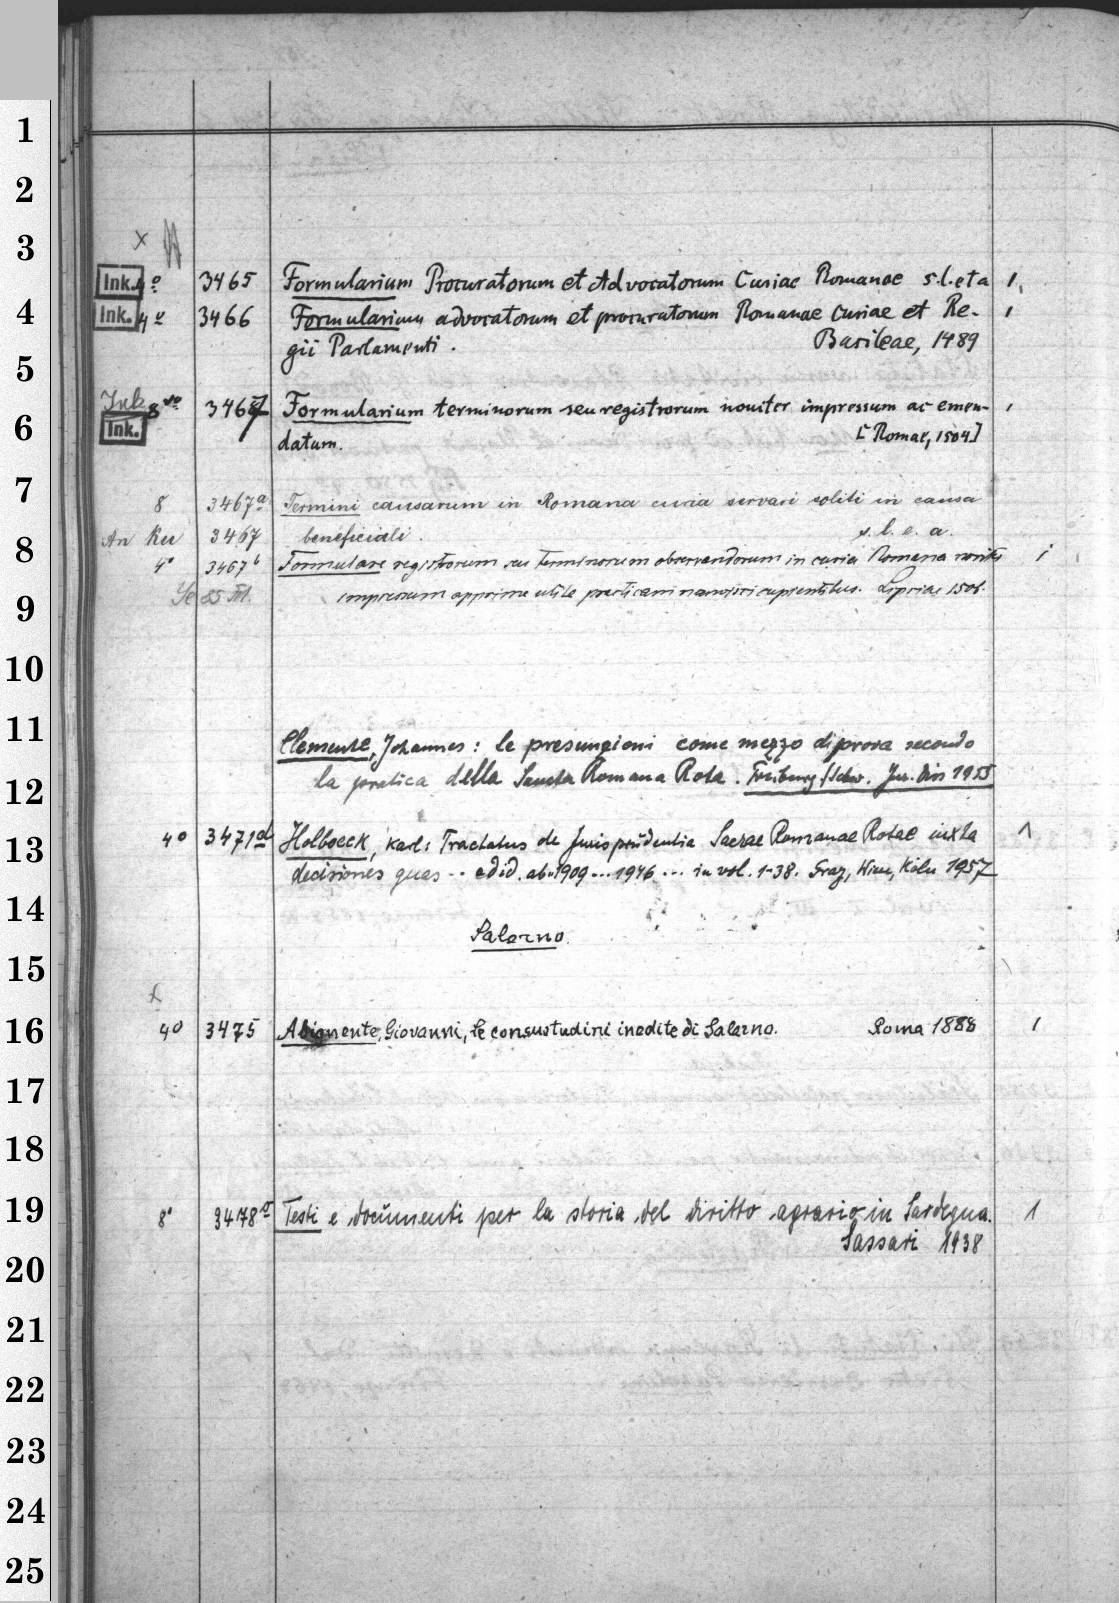 1
2
3
x
Ink. 4º 3465 Formularium Procuratorum et Advocatorum Curiae Romanae s.l.eta 1,
4
Ink. 4º 3466 Formularium advocatorum et procuratorum Romanae Curiae et Re- 1
gii Parlamenti. Basileae, 1489
5
Ink 8vo 3467 Formularium terminorum seu registrorum noviter impressum ac emen- 1
6
Ink. datum. [Romae, 1504]
7
8 3467a Termini causarum in Romana curia servari soliti in causa
An Ku 3467 beneficiali. s. l. e. a.
8
4º 3467b Formulare registrorum seu terminorum observandorum in curia Romana noviter 1
9
impressum apprime utile practicam nancisci cupientibus. Lipsiae 1506.
10
11
Clemente, Johannes: le presunzioni come mezzo di prova secondo
12
la pratica della Sancta Romana Rota. Freiburg/Schw. Jur. Diss 1955
13
4º 3471ad Holboeck, Karl: Tractatus de Jurisprudentia Sacrae Romanae Rotae iuxta 1
decisiones quas .. edid. ab 1909 ... 1946 ... in vol. 1-38. Graz, Wien, Köln 1957
14
Salerno
15
x
16
4º 3475 Abignente, Giovanni, le consuetudini inedite di Salerno. Roma 1888 1
17
18
19
8º 3478a Testi e documenti per la storia del diritto agrario in Sardegna. 1
Sassari 1938
20
21
22
23
24
25